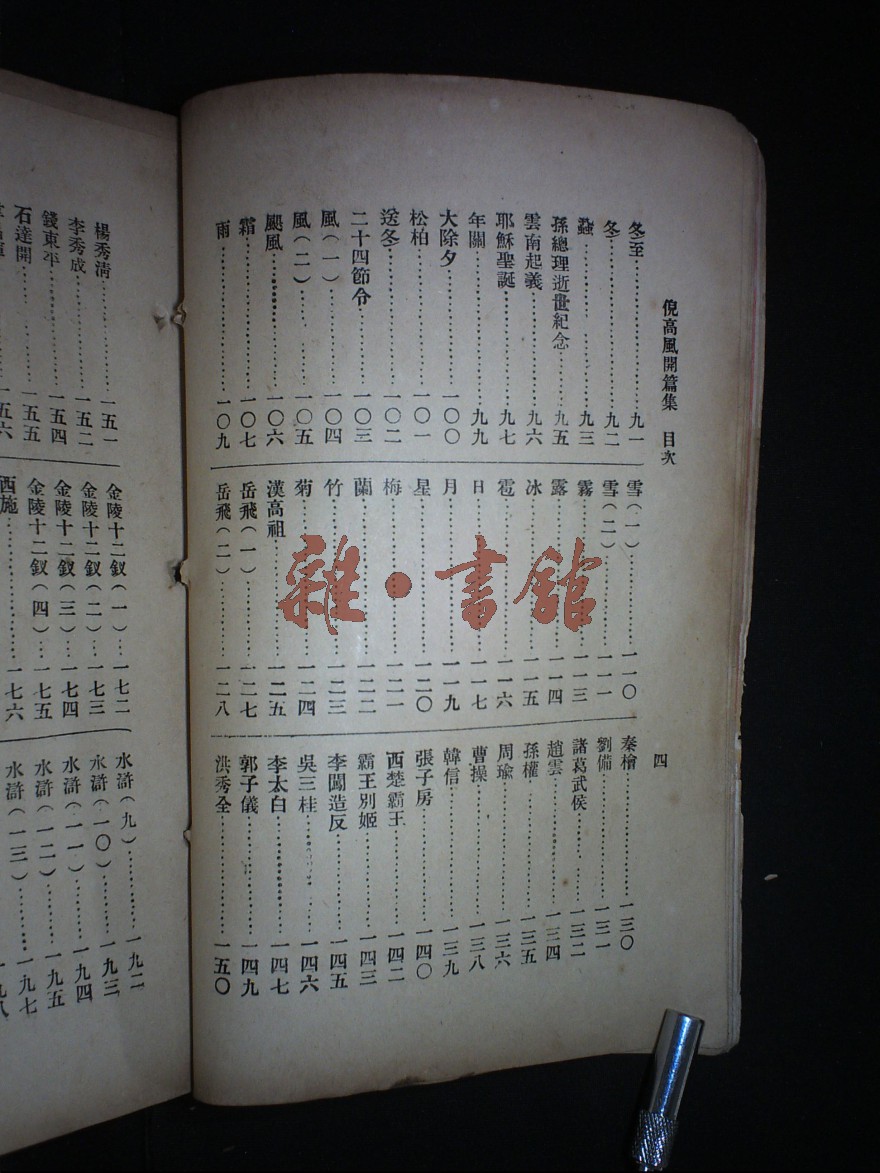 倪高風開篇集　目次
四
冬至……九一
冬……九二
九三
孫總理逝世紀念……九五
雲南起義……九六
耶穌聖誕……九七
年關……九九
大除夕……一〇〇
松柏……一〇一
送冬……一〇二
二十四節令……一〇三
風（一）……一〇四
風（二）……一〇五
颶風……一〇六
霜……一〇七
雨……一〇九
雪（一）……一一〇
雪（二）……一一一
霧……一一三
露……一一四
冰……一一五
雹……一一六
日……一一七
月……一一九
星……一二〇
梅……一二一
蘭……一二二
竹……一二三
菊……一二四
漢高祖……一二五
岳飛（一）……一二七
岳飛（二）……一二八
秦檜……一三〇
劉備……一三一
諸葛武侯……一三二
趙雲……一三四
孫權……一三五
周瑜……一三六
曹操……一三八
韓信……一三九
張子房……一四〇
西楚霸王……一四二
霸王別姬……一四三
李闖造反……一四五
吳三桂……一四六
李太白……一四七
郭子儀……一四九
洪秀全……一五〇
楊秀清……一五一
李秀成……一五二
錢東平……一五四
石達開……一五五
一五六
金陵十二釵（一）……一七二
金陵十二釵（二）……一七三
金陵十二釵（三）……一七四
金陵十二釵（四）……一七五
西施……一七六
水滸（九）……一九二
水滸（一〇）……一九三
水滸（一一）……一九四
水滸（一二）……一九五
水滸（一三）……一九七
一九八
雜·書館